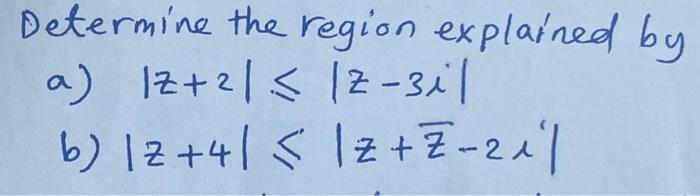 Determine the region explained by
a) |z+2| ⩽ |z-3i|
b) |z+4| ⩽ |z+z̅-2i|